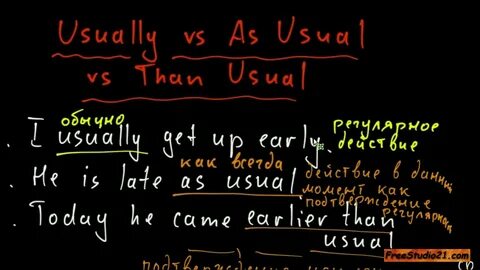 Usually vs As Usual
vs Than Usual
обычно
. I usually get up early.
регулярное
действие
как всегда
. He is late as usual.
действие в данный
момент как
подтверждение
регулярн
. Today he came earlier than
usual
подтверждение
FreeStudio21.com